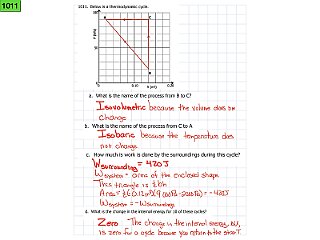 1011
1011. Below is a thermodynamic cycle.
P (kPa)
V (m3)
a. What is the name of the process from B to C?
Isovolumetric because the volume does not
change
b. What is the name of the process from C to A
Isobaric because the temperature does
not change
c. How much is work is done by the surroundings during this cycle?
Wsurroundings = 420J
Wsystem = area of the enclosed shape
This triangle is ½bh
Wsystem = -Wsurroundings
d. What is the change in the internal energy for 10 of these cycles?
Zero - The change in the internal energy, ΔU,
is zero for a cycle because you return to the start